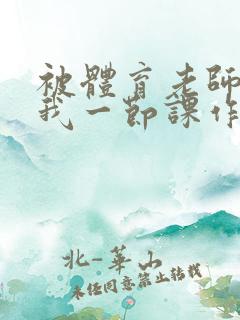 被體育老師
我一節課作
北-華山
未經同意禁止轉載